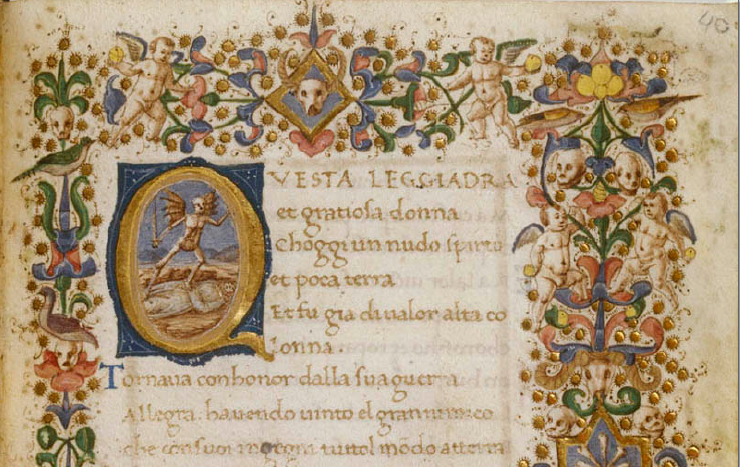 40
QVESTA LEGGIADRA
et gratiosa donna
choggi un nudo spirto
et poca terra
Et fu gia di ualor alta co
lonna.
Tornaua conhonor dalla sua guerra
Allegra. hauendo uinto el gran nimico
che con suoi ingegni tuttol mōdo atterra